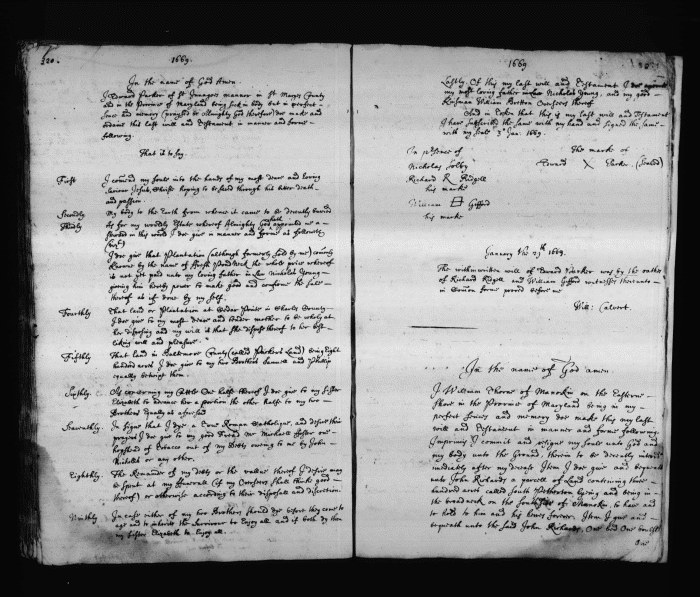 320.
1669.
In the name of God Amen.
I Edward Parker of St Innagoes mannor in St Maryes County
and in the Province of Maryland being sick in body but in perfect
sence and memory (praysed be Allmighty God therefore) doe make and
ordaine this Last will and Testament in manner and forme
following.
That is to say.
First I commend my soule into the hands of my most deare and loving
Saviour Jesus Christ hoping to be saved through his bitter death
and passion.
Secondly My body to the Earth from whence it came to be decently buried
Thirdly As for my worldly Estate whereof Almighty God hath me a
Steward in this world I doe give in manner and forme as followeth
(viz)
I doe give that Plantation (although formerly sold by me) comonly
knowne by the name of the whole price whereof
is not yet paid unto my loving father in Law Nicholas Young
giving him hereby power to make good and confirme the Sale
thereof as if done by my self.
Fourthly That land or Plantation at in Charles County
I doe give to my most deare and tender mother to be wholy at
her disposing and my will is that she dispose thereof to her best
liking will and pleasure.
Fifthly That land in Baltemore County (called Parkers Land) being Eight
hundred acres I doe give to my two Brothers Samuell and Phillip
equally betwixt them.
Sixthly. As concerning my Cattle One halfe thereof I doe give to my Sister
Elizabeth to advance her a portion the other halfe to my two
Brothers Equally as aforesaid
Seaventhly. In signe that I dye a true Roman Catholique, and desire this
I doe give to my good freind Mr Michaell Foster one
hogshead of Tobacco out of my Debts owing to me by John
Nicholls or any other.
Eighthly. The Remainder of my debts or the vallue thereof I desire may
be spent at my funerall (if my Overseers shall think good
thereof) or otherwise according to their disposall and discretion.
Ninthly In case either of my two Brothers should dye before they come to
age and to inherite the survivour to Enjoy all. and if both dy then
my Sister Elizabeth to Enjoy all.
1669
Lastly. Of this my last will and Testament I doe
my most loving father in law Nicholas Young, and my good
Kinsman William Bretton Overseers thereof
And in token that this is my last will and Testament
I have subscribed the same with my hand and signed the same
with my seale 3d Jan: 1669.
In presence of The mark of
Nicholas Solby Edward X Parker. (Sealed)
Richard R Ridgell
his marke
William Gifford
his marke
January the 29th 1669.
The within written will of Edward Parker was by the oathes
of Richard Ridgell and William Gifford witnesses thereunto
in Comon forme proved before me
Will: Calvert
In the name of God amen.
I William Thorne of Manokin on the Easterne
shore in the Province of Maryland being in my
perfect sences and memory doe make this my last
will and Testament in manner and forme following
Imprimis I commit and resigne my soule unto God and
my body unto the Ground, therein to be decently interred
imediately after my decease Item I doe give and bequeath
unto John Richards a parcell of Land containing three
hundred acres called South Petherton lying and being in
the on the South side of Manokin, to have and
to hold to him and his heires forever. Item I give and
bequeath unto the said John Richards, One bed One bowlster
One